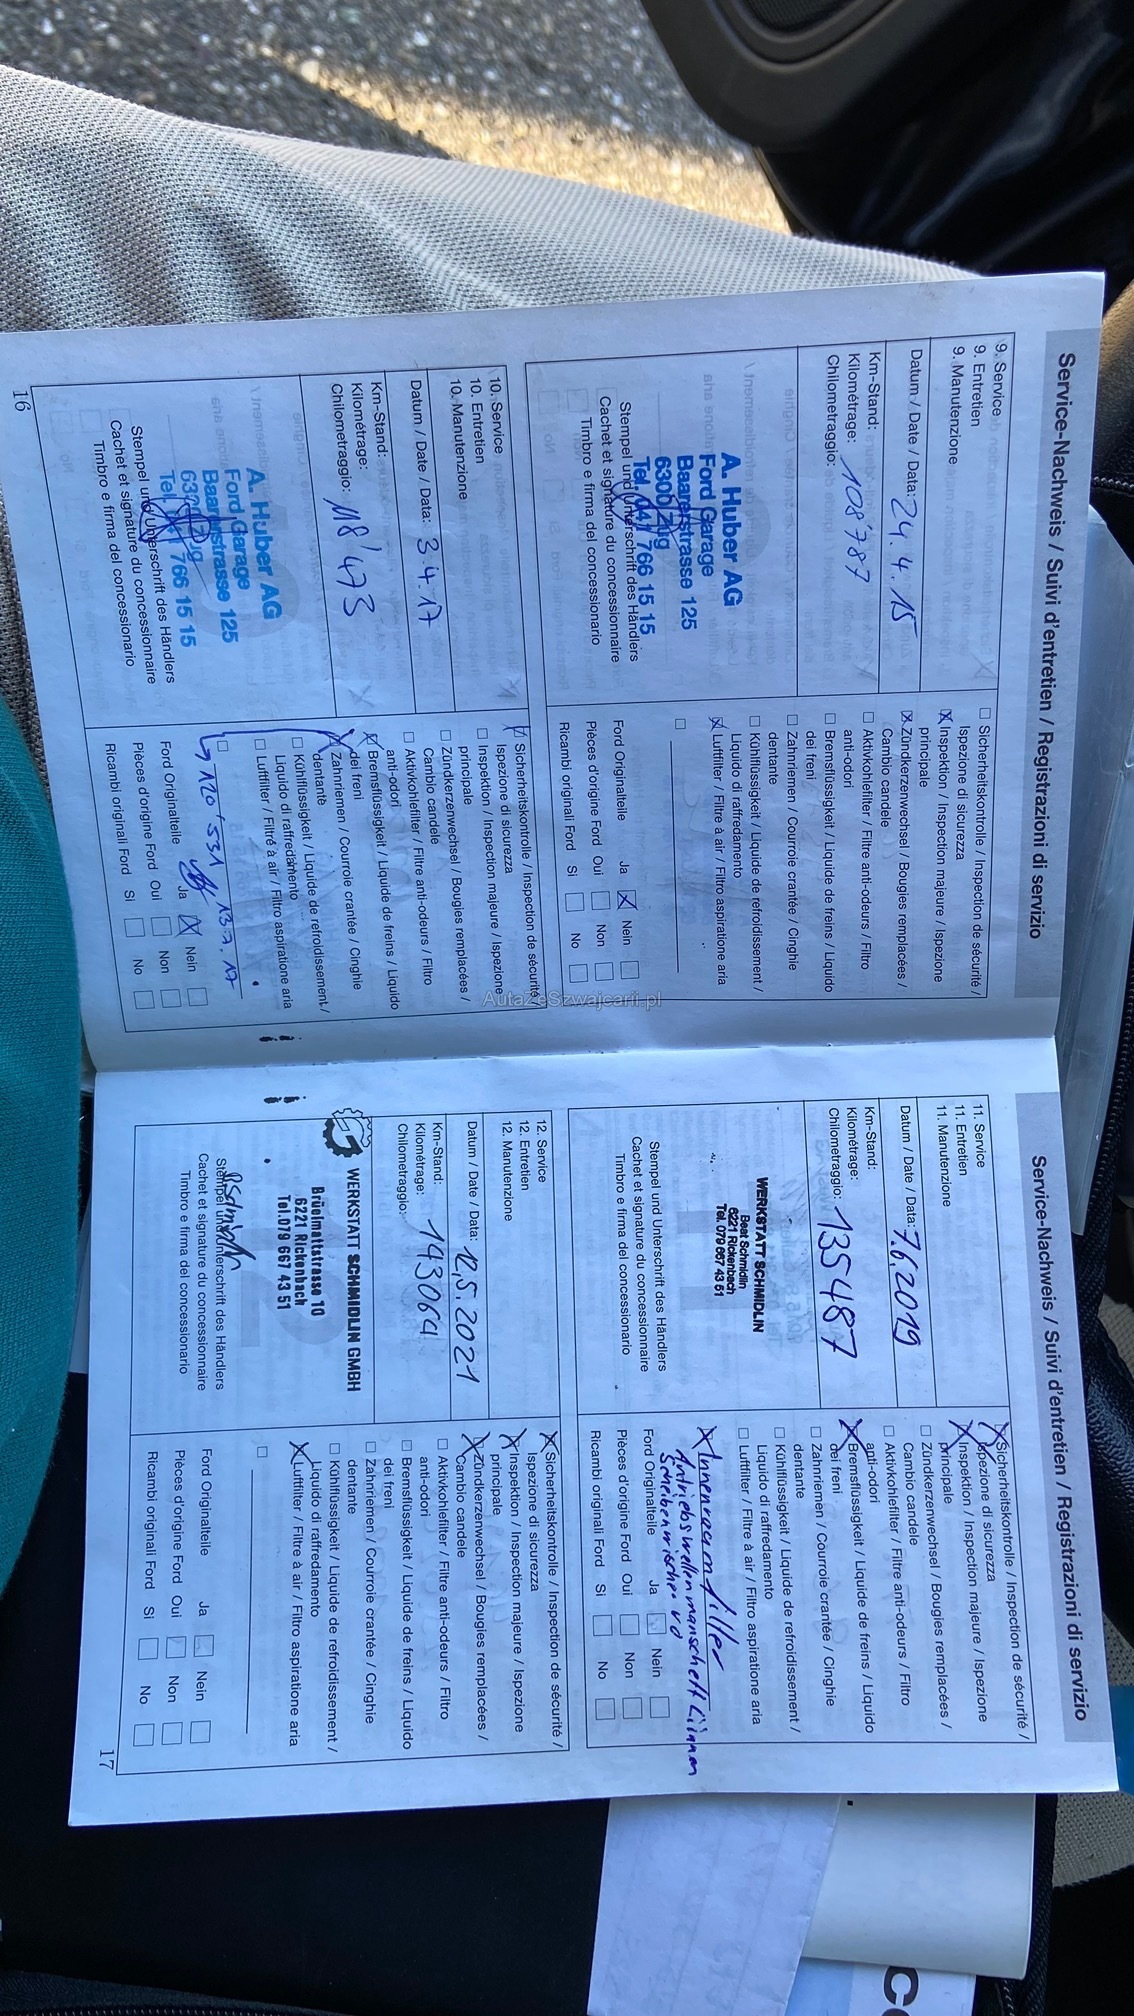 Service-Nachweis / Suivi d'entretien / Registrazioni di servizio
9. Service
9. Entretien
9. Manutenzione
Datum / Date / Data: 24.4.15
Km-Stand:
Kilométrage:
Chilometraggio: 108'787
A. Huber AG
Ford Garage
Baarerstrasse 125
6300 Zug
Tel. 041 766 15 15
Stempel und Unterschrift des Händlers
Cachet et signature du concessionnaire
Timbro e firma del concessionario
Sicherheitskontrolle / Inspection de sécurité /
Ispezione di sicurezza
Inspektion / Inspection majeure / Ispezione
principale
Zündkerzenwechsel / Bougies remplacées /
Cambio candele
Aktivkohlefilter / Filtre anti-odeurs / Filtro
anti-odori
Bremsflüssigkeit / Liquide de freins / Liquido
dei freni
Zahnriemen / Courroie crantée / Cinghie
dentante
Kühlflüssigkeit / Liquide de refroidissement /
Liquido di raffredamento
Luftfilter / Filtre à air / Filtro aspiratione aria
Ford Originalteile Ja Nein
Pièces d'origine Ford Oui Non
Ricambi originali Ford Si No
10. Service
10. Entretien
10. Manutenzione
Datum / Date / Data: 3.4.17
Km-Stand:
Kilométrage:
Chilometraggio: 118'473
A. Huber AG
Ford Garage
Baarerstrasse 125
6300 Zug
Tel. 041 766 15 15
Stempel und Unterschrift des Händlers
Cachet et signature du concessionnaire
Timbro e firma del concessionario
Sicherheitskontrolle / Inspection de sécurité /
Ispezione di sicurezza
Inspektion / Inspection majeure / Ispezione
principale
Zündkerzenwechsel / Bougies remplacées /
Cambio candele
Aktivkohlefilter / Filtre anti-odeurs / Filtro
anti-odori
Bremsflüssigkeit / Liquide de freins / Liquido
dei freni
Zahnriemen / Courroie crantée / Cinghie
dentante
Kühlflüssigkeit / Liquide de refroidissement /
Liquido di raffredamento
Luftfilter / Filtre à air / Filtro aspiratione aria
120'531 13.7.17
Ford Originalteile Ja Nein
Pièces d'origine Ford Oui Non
Ricambi originali Ford Si No
16
AutaZeSzwajcarii.pl
Service-Nachweis / Suivi d'entretien / Registrazioni di servizio
11. Service
11. Entretien
11. Manutenzione
Datum / Date / Data: 7.6.2019
Km-Stand:
Kilométrage:
Chilometraggio: 135487
WERKSTATT SCHMIDLIN
Beat Schmidlin
6221 Rickenbach
Tel. 079 667 43 51
Stempel und Unterschrift des Händlers
Cachet et signature du concessionnaire
Timbro e firma del concessionario
Sicherheitskontrolle / Inspection de sécurité /
Ispezione di sicurezza
Inspektion / Inspection majeure / Ispezione
principale
Zündkerzenwechsel / Bougies remplacées /
Cambio candele
Aktivkohlefilter / Filtre anti-odeurs / Filtro
anti-odori
Bremsflüssigkeit / Liquide de freins / Liquido
dei freni
Zahnriemen / Courroie crantée / Cinghie
dentante
Kühlflüssigkeit / Liquide de refroidissement /
Liquido di raffredamento
Luftfilter / Filtre à air / Filtro aspiratione aria
Innenraumfilter
Ford Originalteile Ja Nein
Pièces d'origine Ford Oui Non
Ricambi originali Ford Si No
12. Service
12. Entretien
12. Manutenzione
Datum / Date / Data: 12.5.2021
Km-Stand:
Kilométrage:
Chilometraggio: 143064
WERKSTATT SCHMIDLIN GMBH
Brüelmattstrasse 10
6221 Rickenbach
Tel.079 667 43 51
Stempel und Unterschrift des Händlers
Cachet et signature du concessionnaire
Timbro e firma del concessionario
Sicherheitskontrolle / Inspection de sécurité /
Ispezione di sicurezza
Inspektion / Inspection majeure / Ispezione
principale
Zündkerzenwechsel / Bougies remplacées /
Cambio candele
Aktivkohlefilter / Filtre anti-odeurs / Filtro
anti-odori
Bremsflüssigkeit / Liquide de freins / Liquido
dei freni
Zahnriemen / Courroie crantée / Cinghie
dentante
Kühlflüssigkeit / Liquide de refroidissement /
Liquido di raffredamento
Luftfilter / Filtre à air / Filtro aspiratione aria
Ford Originalteile Ja Nein
Pièces d'origine Ford Oui Non
Ricambi originali Ford Si No
17